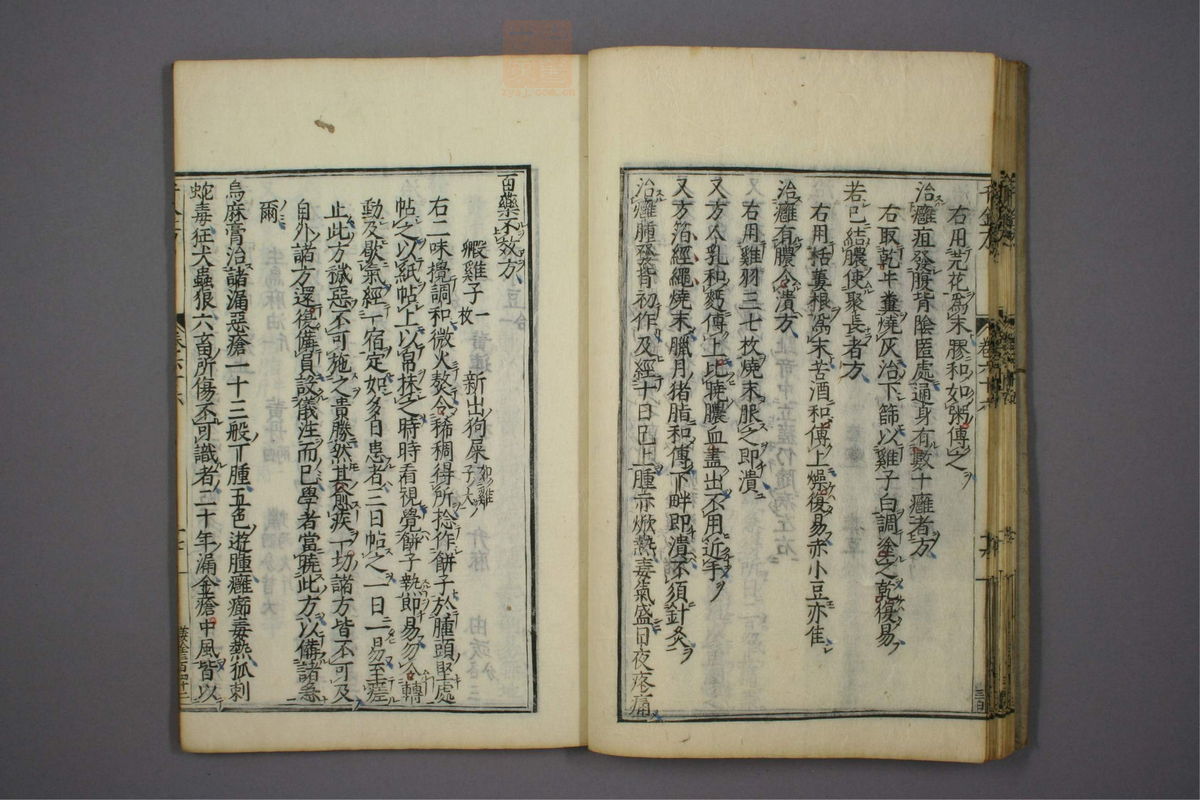 右用芫花為末膠和如粥傅之
治癰疽發腹背陰匿處通身有數十癰者方
右取乾牛糞燒灰治下篩以雞子白調塗之乾復易
若已結膿使聚長者方
右用栝蔞根為末苦酒和傅上燥復易赤小豆亦佳
治癰有膿令潰方
右用雞羽三七枚燒末服之即潰
又方人乳和麪傅上比曉膿血盡出不用近手
又方箔經繩燒末臘月猪脂和傅下畔即潰不須針灸
治癰腫發背初作及經十日已上腫赤焮熱毒氣盛日夜疼痛
百藥不效方
毈雞子一枚 新出狗屎如雞子大
右二味攪調和微火熬令稀稠得所捻作餅子於腫頭堅處
帖之以紙帖上以帛抹之時時看視覺餅子熱即易勿令轉
動及歇氣經一宿定如多日患者三日帖之一日一易至瘥
止此方穢惡不可施之貴勝然其愈疾一切諸方皆不可及
自外諸方還復備員設儀注而已學者當曉此方以備諸急
爾
烏麻膏治諸漏惡瘡一十三般丁腫五色遊腫癰癤毒熱狐刺
蛇毒狂犬蟲狼六畜所傷不可識者二十年漏金瘡中風皆以